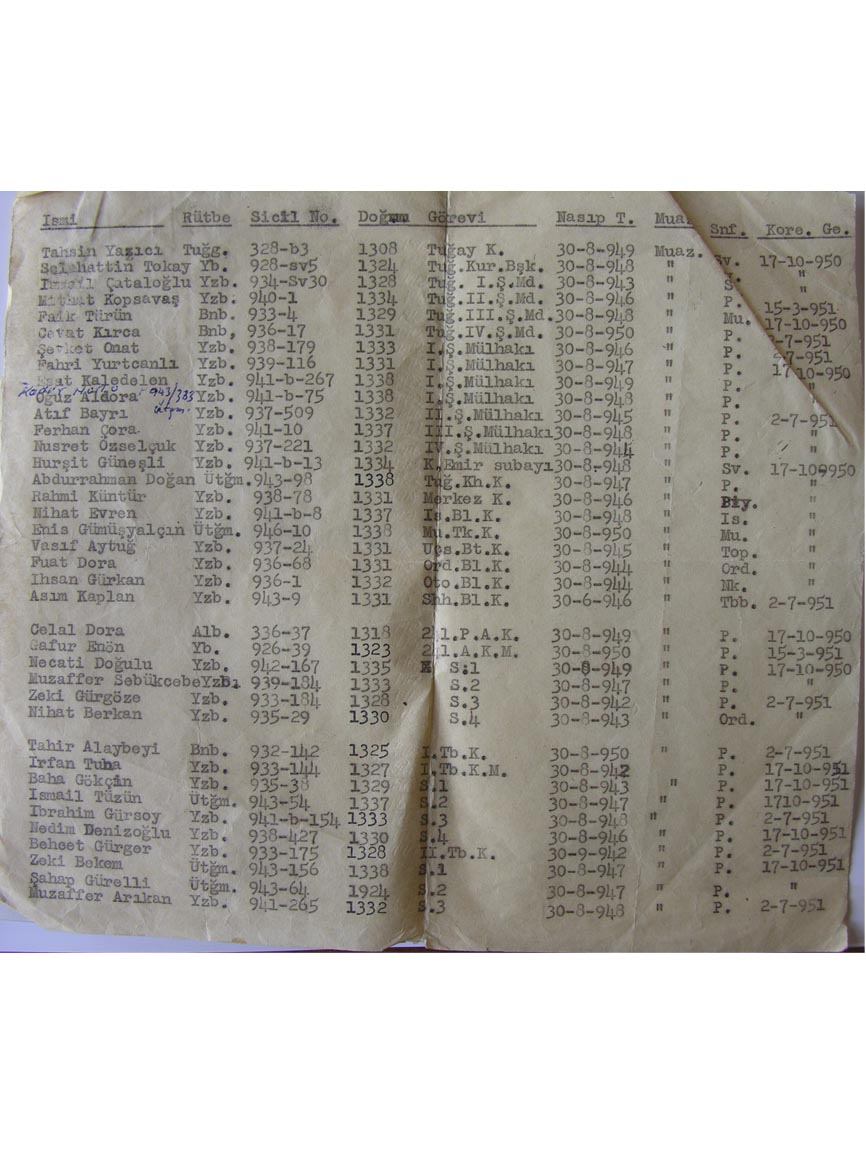 Ismi Rütbe Sicil No. Doğum Görevi Nasıp T. Muaz Snf. Kore. Ge.
Tahsin Yazıcı Tuğg. 328-b3 1308 Tuğay K. 30-8-949 Muaz. Sv. 17-10-950
Selahattin Tokay Yb. 928-sv5 1324 Tuğ.Kur.Bşk. 30-8-948 " "
Ismail Çataloğlu Yzb. 934-Sv30 1328 Tuğ. I.Ş.Md. 30-8-943 " S. "
Mithat Kopsavaş Yzb. 940-1 1334 Tuğ.II.Ş.Md. 30-8-946 " P. 15-3-951
Faik Türün Bnb. 933-4 1329 Tuğ.III.Ş.Md. 30-8-948 " Mu. 17-10-950
Cevat Kırca Bnb, 936-17 1331 Tuğ.IV.Ş.Md. 30-8-950 " P. 2-7-951
Şevket Onat Yzb. 938-179 1333 I.Ş.Mülhakı 30-8-946 " P. 2-7-951
Fahri Yurtcanlı Yzb. 939-116 1331 I.Ş.Mülhakı 30-8-947 " P. 17-10-950
Kaledelen Yzb. 941-b-267 1338 I.Ş.Mülhakı 30-8-949 " P. "
Oğuz Aldora Yzb. 941-b-75 1338 I.Ş.Mülhakı 30-8-948 " P. "
943/383 Ütğm.
Atıf Bayrı Yzb. 937-509 1332 II.Ş.Mülhakı 30-8-945 " P. 2-7-951
Ferhan Çora Yzb. 941-10 1337 III.Ş.Mülhakı 30-8-948 " P. "
Nusret Özselçuk Yzb. 937-221 1332 IV.Ş.Mülhakı 30-8-944 " P. "
Hurşit Güneşli Yzb. 941-b-13 1334 K.Emir subayı 30-8-948 " Sv. 17-10-950
Abdurrahman Doğan Ütğm. 943-98 1338 Tuğ.Kh.K. 30-8-947 " P. "
Rahmi Küntür Yzb. 938-78 1331 Merkez K. 30-8-946 " Biy. "
Nihat Evren Yzb. 941-b-8 1337 Is.Bl.K. 30-8-948 " Is. "
Enis Gümüşyalçın Ütğm. 946-10 1338 Mu.Tk.K. 30-8-950 " Mu. "
Vasıf Aytuğ Yzb. 937-24 1331 Uçs.Bt.K. 30-8-945 " Top. "
Fuat Dora Yzb. 936-68 1331 Ord.Bl.K. 30-8-944 " Ord. "
Ihsan Gürkan Yzb. 936-1 1332 Oto.Bl.K. 30-8-944 " Nk. "
Asım Kaplan Yzb. 943-9 1331 Shh.Bl.K. 30-6-946 " Tbb. 2-7-951
Celal Dora Alb. 336-37 1318 241.P.A.K. 30-8-949 " P. 17-10-950
Gafur Enön Yb. 926-39 1323 241.A.K.M. 30-8-950 " P. 15-3-951
Necati Doğulu Yzb. 942-167 1335 S.1 30-8-949 " P. 17-10-950
Muzaffer Sebükcebe Yzb. 939-184 1333 S.2 30-8-947 " P. "
Zeki Gürgöze Yzb. 933-184 1328 S.3 30-8-942 " P. 2-7-951
Nihat Berkan Yzb. 935-29 1330 S.4 30-8-943 " Ord. "
Tahir Alaybeyi Bnb. 932-142 1325 I.Tb.K. 30-8-950 " P. 2-7-951
Irfan Tuna Yzb. 933-144 1327 I.Tb.K.M. 30-8-942 P. 17-10-951
Baha Gökçin Yzb. 935-38 1329 S.1 30-8-943 " P. 2-7-951
Ismail Tüzün Ütğm. 943-54 1337 S.2 30-8-947 " P. 1710-951
Ibrahim Gürsoy Yzb. 941-b-154 1333 S.3 30-8-948 " P. 2-7-951
Nedim Denizoğlu Yzb. 938-427 1330 S.4 30-8-946 " P. 17-10-951
Behcet Gürger Yzb. 933-175 1328 II.Tb.K. 30-9-942 " P. 2-7-951
Zeki Bekem Ütğm. 943-156 1338 S.1 30-8-947 " P. 17-10-951
Şahap Gürelli Ütğm. 943-64 1924 S.2 30-8-947 " P. "
Muzaffer Arıkan Yzb. 941-265 1332 S.3 30-8-948 " P. 2-7-951